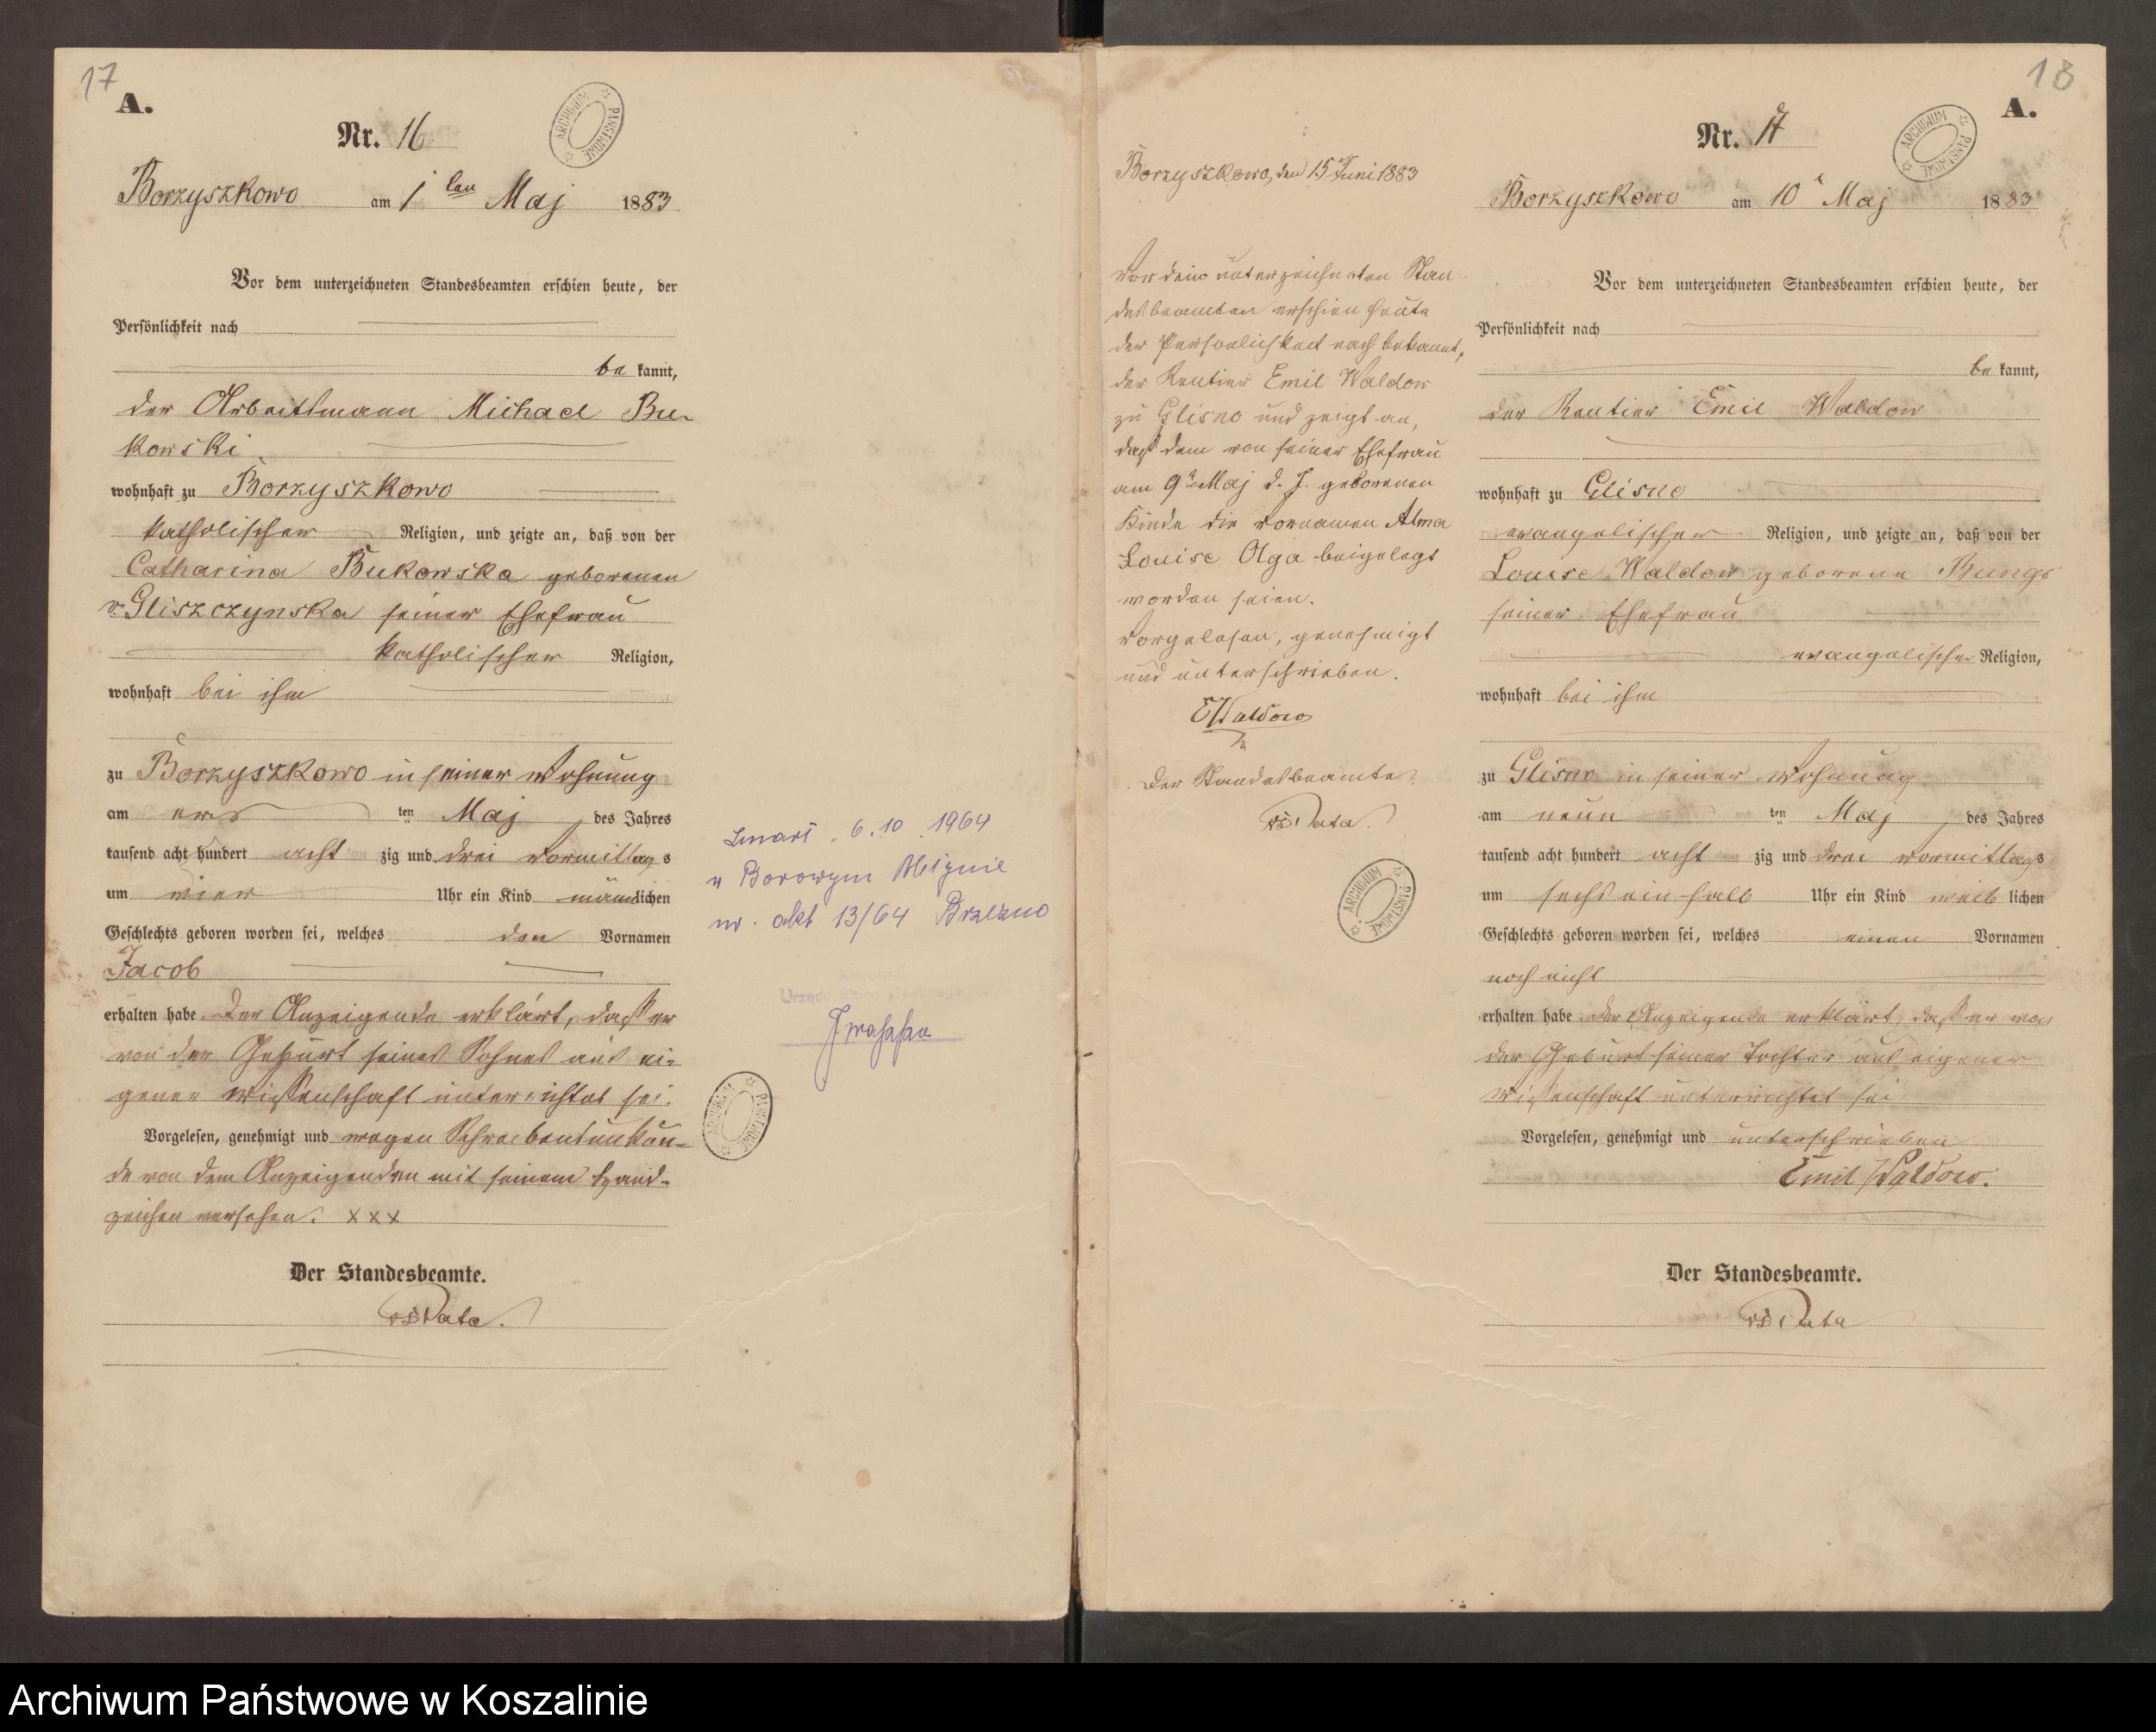 17
A.
Nr. 16
ARCHIWUM PAŃSTWOWE
Borzyszkowo am 1ten Maj 1883
Vor dem unterzeichneten Standesbeamten erschien heute, der
Persönlichkeit nach
be kannt,
der Arbeitsmann Michael Bu-
kowski
wohnhaft zu Borzyszkowo
katholischer Religion, und zeigte an, daß von der
Catharina Bukowska geborenen
v. Gliszczynska seiner Ehefrau
katholischer Religion,
wohnhaft bei ihm
zu Borzyszkowo in seiner Wohnung
am ers ten Maj des Jahres
tausend acht hundert acht zig und drei Vormittags
um vier Uhr ein Kind männlichen
Geschlechts geboren worden sei, welches den Vornamen
Jacob
erhalten habe. Der Anzeigende erklärt, daß er
von der Geburt seines Sohnes aus ei-
gener Wissenschaft unterrichtet sei.
Vorgelesen, genehmigt und wegen Schreibensunkun-
de von dem Anzeigenden mit seinem Hand-
zeichen versehen. x x x
Der Standesbeamte.
Data.
Zmarł 6.10.1964
w Borowym Młynie
nr. akt 13/64 Brzeźno
ARCHIWUM PAŃSTWOWE
18
A.
Nr. 17
ARCHIWUM PAŃSTWOWE
Borzyszkowo, den 15 Juni 1883
Vor dem unterzeichneten Stan-
desbeamten erschien heute
der Persönlichkeit nach bekannt,
der Rentier Emil Waldow
zu Glisno und zeigt an,
daß dem von seiner Ehefrau
am 9t Maj d. J. geborenen
Kinde die Vornamen Alma
Louise Olga beigelegt
worden seien.
Vorgelesen, genehmigt
und unterschrieben.
E Waldow
Der Standesbeamte.
Data.
ARCHIWUM PAŃSTWOWE
Borzyszkowo am 10t Maj 1883
Vor dem unterzeichneten Standesbeamten erschien heute, der
Persönlichkeit nach
be kannt,
der Rentier Emil Waldow
wohnhaft zu Glisno
evangelischer Religion, und zeigte an, daß von der
Louise Waldow geborene
seiner Ehefrau
evangelischer Religion,
wohnhaft bei ihm
zu Glisno in seiner Wohnung
am neun ten Maj des Jahres
tausend acht hundert acht zig und drei Vormittags
um sechs ein halb Uhr ein Kind weib lichen
Geschlechts geboren worden sei, welches einen Vornamen
noch nicht
erhalten habe. Der Anzeigende erklärt, daß er von
der Geburt seiner Tochter aus eigener
Wissenschaft unterrichtet sei
Vorgelesen, genehmigt und unterschrieben
Emil Waldow.
Der Standesbeamte.
Data
Archiwum Państwowe w Koszalinie